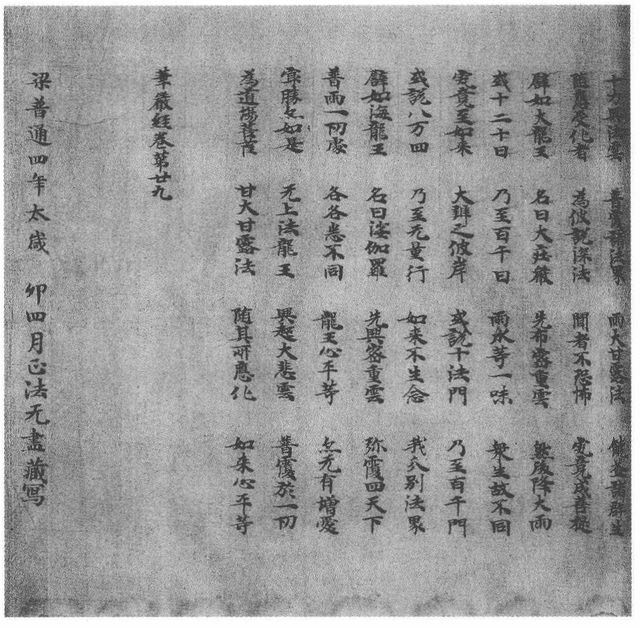 十方興法雲 普覆諸法界 雨大甘露法 饒益諸群生
隨應受化者 為彼說深法 聞者不恐怖 究竟成菩提
譬如大龍王 名曰大莊嚴 先布密重雲 然後降大雨
或十二十日 乃至百千日 雨水等一味 衆生故不同
究竟至如来 大辯之彼岸 或說十法門 乃至百千門
或說八万四 乃至无量行 如来不生念 我分別法界
譬如海龍王 名曰娑伽羅 先興密重雲 弥覆四天下
普雨一切處 各各悉不同 龍王心平等 亦无有增愛
㝡勝亦如是 无上法龍王 興起大悲雲 普覆於一切
為道場菩薩 甘大甘露法 随其所應化 如来心平等
華嚴経卷第廿九
梁普通四年太歲 卯四月正法无盡藏寫